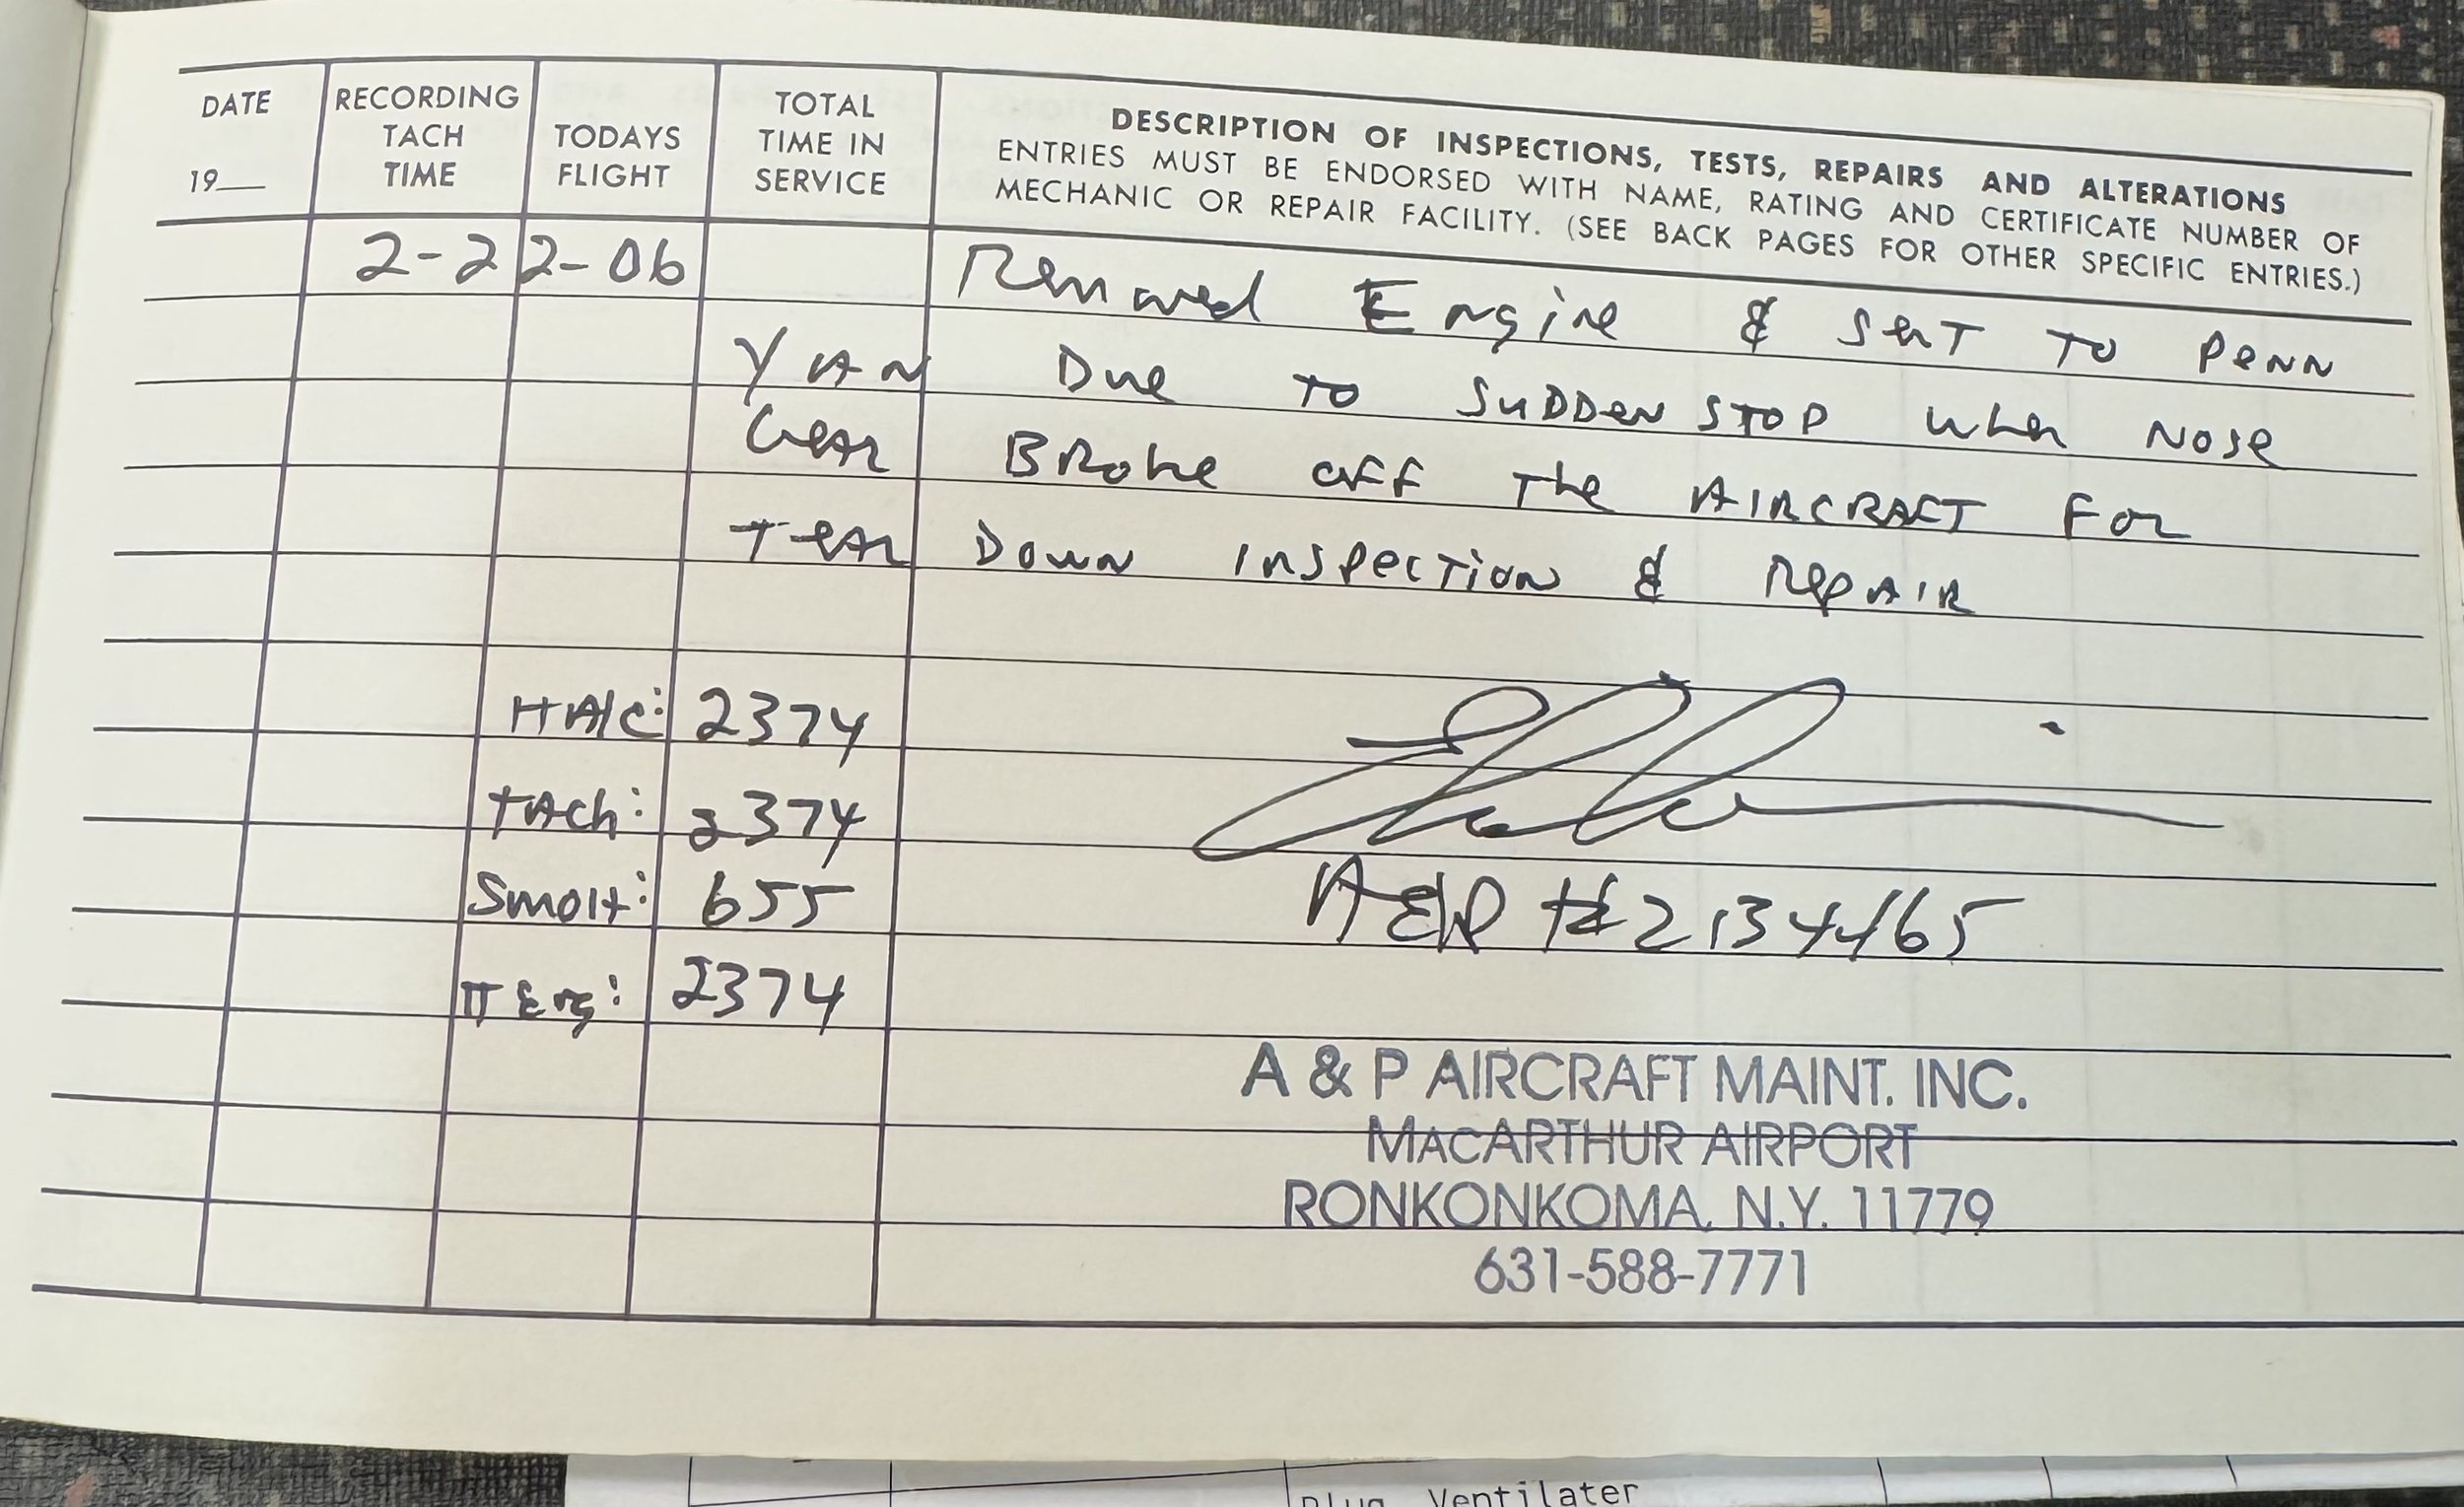 DATE
19__
RECORDING TACH TIME
TODAYS FLIGHT
TOTAL TIME IN SERVICE
DESCRIPTION OF INSPECTIONS, TESTS, REPAIRS AND ALTERATIONS
ENTRIES MUST BE ENDORSED WITH NAME, RATING AND CERTIFICATE NUMBER OF
MECHANIC OR REPAIR FACILITY. (SEE BACK PAGES FOR OTHER SPECIFIC ENTRIES.)
2-22-06 Removed Engine & Sent To Penn
YAN Due To SuDDen STOP When Nose
Gear Broke off The AIRCRAFT For
Tear Down Inspection & Repair
2374
TAch: 2374
SMOH: 655
TT Eng: 2374
A&P # 2134465
A & P AIRCRAFT MAINT. INC.
MACARTHUR AIRPORT
RONKONKOMA, N.Y. 11779
631-588-7771
Ventilater